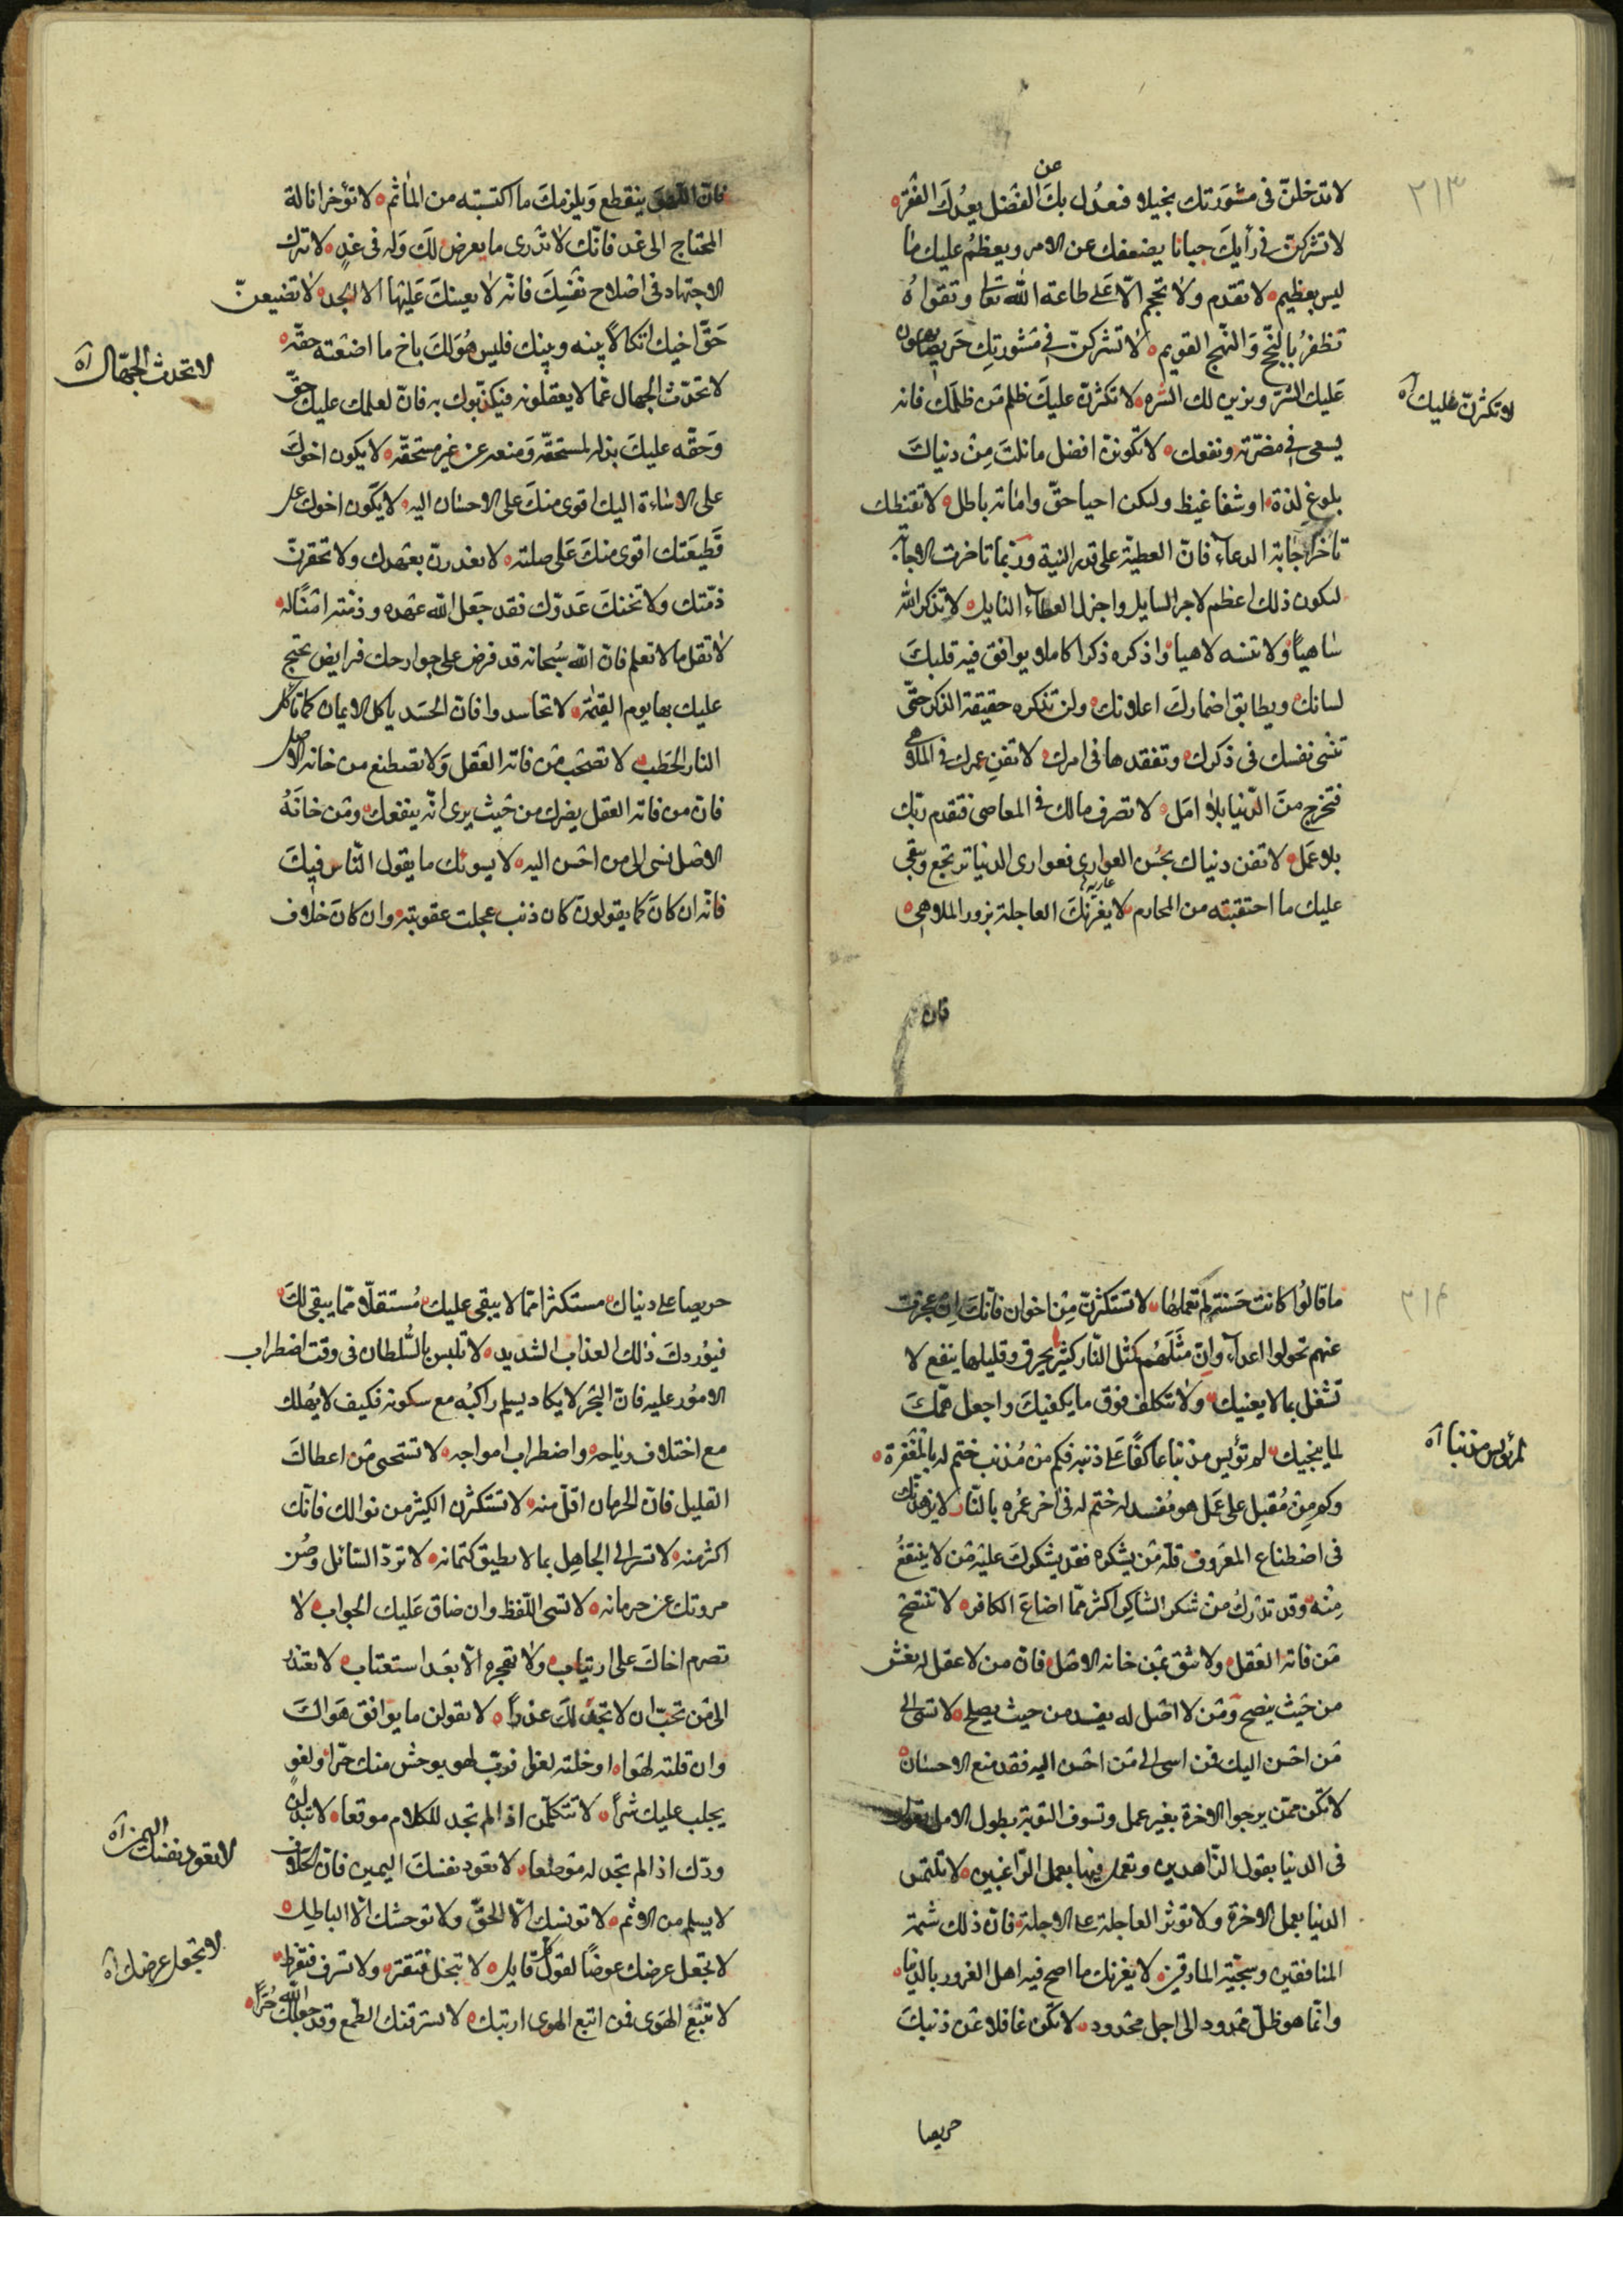 ٢١٣
لا تدخلنّ فى مشورتك بخيلا فيعدل بك عن الفضل يعدك الفقر
لا تشركنّ فى رأيك جبانا يضعفك عن الامر ويعظم عليك ما
ليس بعظيم لا تقدم ولا تحجم الّا على طاعة الله تعا وتقواه
تظفر بالنجح والنهج القويم لا تشركنّ فى مشورتك حريصا يهون
عليك الشرّ ويزين لك الشره لا تكثرنّ عليك ظلم من ظلمك فانه
يسعى فى مضرّته ونفعك لا تكونن افضل مانلت من دنياك
بلوغ لذة او شفا غيظ ولكن احيا حقّ واماتة باطل لا تقنطك
تاخر اجابة الدعاء فانّ العطيّة على قدر النية وربّما تاخرت الاجابة
لتكون ذلك اعظم لاجر السايل واجزل العطاء النايل لا تذكر الله
ساهيا ولا تنسه لاهيا واذكره ذكرا كاملا يوافق فيه قلبك
لسانك ويطابق اضمارك اعلانك ولن تذكره حقيقة الذكر حتّى
تنسى نفسك فى ذكرك وتفقدها فى امرك لا تفن عمرك فى الملاهى
فتخرج من الدّنيا بلا امل لا تصرف مالك فى المعاصى فتقدم ربّك
بلا عمل لا تفن دنياك بحسن العوارى فعوارى الدنيا ترتجع ويبقى
عارية
عليك ما احتقبته من المحارم لا يغرّنك العاجلة بزور الملاهى
فان
لا تكثرنّ عليك آه
فانّ اللهو ينقطع ويلزمك ما اكتسبته من المآثم لا تؤخر انالة
المحتاج الى غد فانّك لا تدرى ما يعرض لك وله فى غد لا تترك
الاجتهاد فى اصلاح نفسك فانه لا يعينك عليها الا الجد لا تضيعنّ
حقّ اخيك اتكالا بينه وبينك فليس هو لك باخ ما اضعته حقه
لا تحدّث الجهال بما لا يعقلونه فيكذّبوك به فانّ لعلمك عليك حقّ
وحقّه عليك بذله لمستحقّه ومنعه عن غير مستحقّه لا يكون اخوك
على الاساءة اليك اقوى منك على الاحسان اليه لا يكون اخوك على
قطيعتك اقوى منك على صلته لا تغدرنّ بعهدك ولا تحقرنّ
ذمّتك ولا تختلّ عدوّك فقد جعل الله عهده وذمّته امنا له
لا تقل ما لا تعلم فانّ الله سبحانه قد فرض على جوارحك فرايض تحتج
عليك بها يوم القيمة لا تحاسدوا فان الحسد ياكل الايمان كما تاكل
النار الحطب لا تصحب من فاته العقل ولا تصطنع من خانه الاصل
فان من فاته العقل يضرك من حيث يرى انّه ينفعك ومن خانه
الاصل يسى الى من احسن اليه لا يسوئك ما يقول النّاس فيك
فانّه ان كان كما يقولون كان ذنب عجلت عقوبته وان كان خلاف
لا تحدث الجهّال آه
٢١٤
ما قالوا كانت حسنة لم تعملها لا تستكثرنّ من اخوان فانّك ان عجزت
عنهم تحولوا اعداء وانّ مثلهم كمثل النّار كثيرها يحرق وقليلها ينفع لا
تشغل بما لا يعنيك ولا تتكلف فوق ما يكفيك واجعل همّك
لما ينجيك لا تؤيس مذنبا عاكفا على ذنبه فكم من مذنب ختم له بالمغفرة
وكم من مقبل على عمل هو مفسد له ختم له فى اخر عمره بالنّار لا يزهدنّك
فى اصطناع المعروف قلّة من يشكره فقد يشكرك عليه من لا ينتفع
منه وقد تدرك من شكر الشاكر اكثر ممّا اضاع الكافر لا تنتصح
من فاته العقل ولا تثق بمن خانه الاصل فانّ من لا عقل له يغش
من حيث ينصح ومن لا اصل له يفسد من حيث يصلح لا تسى الى
من احسن اليك فمن اسى الى من احسن اليه فقد منع الاحسان
لا تكن ممّن يرجوا الاخرة بغير عمل وتسوف التوبة بطول الامل يقول
فى الدنيا بقول الزّاهدين وتعمل فيها بعمل الرّاغبين لا تلتمس
الدنيا بعمل الاخرة ولا تؤثر العاجلة على الاجلة فان ذلك شيمة
المنافقين وسجيّة المارقين لا يغرّنك ما اصبح فيه اهل الغرور بالدنيا
وانّما هو ظلّ ممدود الى اجل محدود لا تكن غافلا عن ذنبك
حريصا
لا تؤيس مذنبا آه
حريصا على دنياك مستكثرا ممّا لا يبقى عليك مستقلّا ممّا يبقى لك
فيوردك ذلك العذاب الشديد لا تلبس بالسّلطان فى وقت اضطراب
الامور عليه فان البحر لا يكاد يسلم راكبه مع سكونه فكيف لا يهلك
مع اختلاف رياحه واضطراب امواجه لا تستحى من اعطاك
القليل فان الحرمان اقلّ منه لا تستكثرن الكثير من نوالك فانّك
اكثر منه لا تسر الى الجاهل بما لا يطيق كتمانه لا تردّ السّائل وصن
مروتك عن حرمانه لا تسى اللّفظ وان ضاق عليك الجواب لا
تصرم اخاك على ارتياب ولا تهجره الّا بعد استعتاب لا تعتذر
الى من تحبّ ان لا تجد لك عذرا لا تقولن ما يوافق هواك
وان قلته لهوا او خلته لغوا فربّ لهو يوحش منك حرّا ولغو
يجلب عليك شرّا لا تتكلّمن اذا لم تجد للكلام موقعا لا تبذلن
ودّك اذا لم تجد له موضعا لا تعود نفسك اليمين فانّ الحلاف
لا يسلم من الاثم لا تونسك الّا الحقّ ولا توحشك الّا الباطل
لا تجعل عرضك عوضا لقول كل قايل لا تبخل فتقتر ولا تسرف فتفرط
لا تتبع الهوى فمن اتبع الهوى ارتبك لا تسترقنك الطّمع وقد جعلك الله حرّا
لا تعود نفسك اليمين آه
لا تجعل عرضك آه